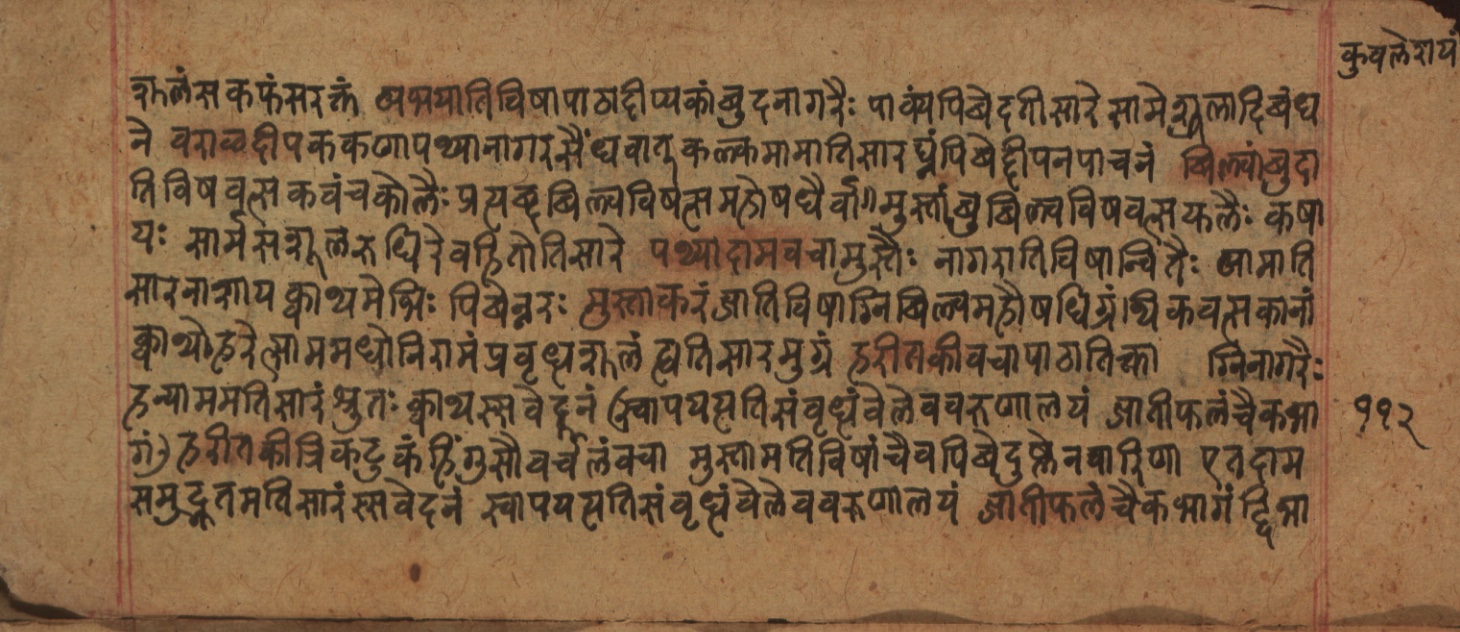 कुवलेरायं
शूलं सकफं सरक्तं अभयातिविषापाठादीप्यकांबुदनागरैः पाक्यं पिबेदतीसारे सामे शूलादिबंध
ने वराव्वदीपककणापथ्यानागरसैंधवात् कल्कमामातिसारघ्नं पिबेद्दीपनपाचनं बिल्वांबुदा
तिविषवत्सकवंचकोलैः प्रत्यकृबिल्वविषत्समहोषधैर्वा॥ मुस्तांबुबिल्वविषवत्सफलैः कषा
यः सामे सशूलरुधिरे वहितोतिसारे पथ्यादामवचामुस्तैः नागरातिविषान्वितैः आमाति
सारनाशाय क्वाथमेभिः पिबेन्नरः मुस्ताकरंजातिविषाग्निबिल्वमहौषधिग्रंथिकवत्सकानां
क्वाथो हरेत्साममधोनिरामं प्रवृधशूलं ह्यतिसारमुग्रं हरीतकीवचापाठातिक्ता ग्निनागरैः
हन्यामममतिसारं श्रुतः क्वाथस्सवेदनं (स्वापययतिसंवृध्धंवेलेववरुणालयं जातीफलंचैकभा ११२
गं) हरीतकीत्रिकटुकं हिंगुसौवर्चलंवचा मुस्तामतिविषांचैव पिबेदुष्णेनवारिणा एतदाम
समुद्भूतमतिसारंस्सवेदनं स्वापययतिसंवृध्धंवेलेववरुणालयं जातीफलंचैकभागं द्विभा